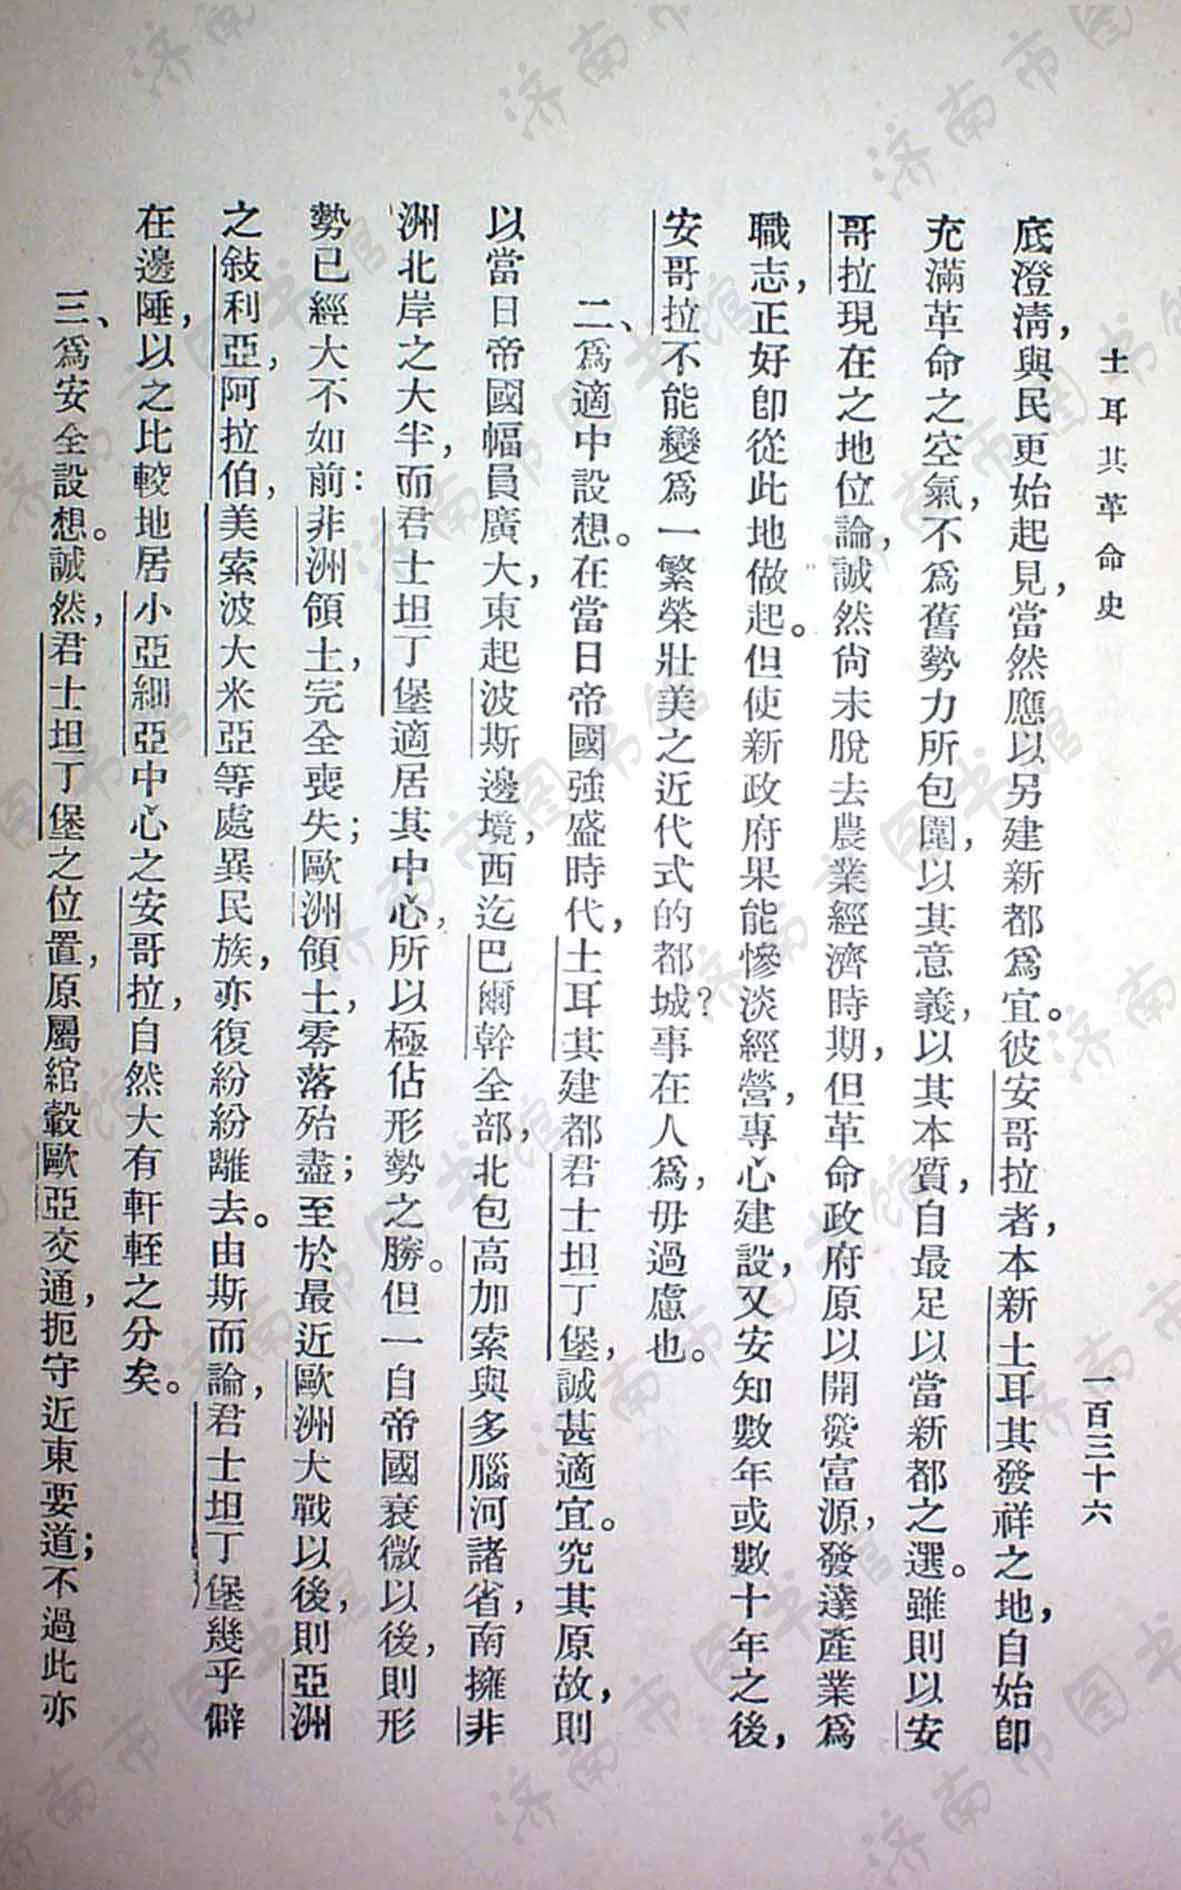 土耳其革命史
一百三十六
底澄淸，與民更始起見，當然應以另建新都爲宜。彼安哥拉者，本新土耳其發祥之地，自始卽
充滿革命之空氣，不爲舊勢力所包圍，以其意義，以其本質，自最足以當新都之選。雖則以安
哥拉現在之地位論，誠然尙未脫去農業經濟時期，但革命政府原以開發富源，發達產業爲
職志，正好卽從此地做起。但使新政府果能慘淡經營，專心建設，又安知數年或數十年之後，
安哥拉不能變爲一繁榮壯美之近代式的都城？事在人爲，毋過慮也。
二、爲適中設想。在當日帝國強盛時代，土耳其建都君士坦丁堡，誠甚適宜。究其原故，則
以當日帝國幅員廣大，東起波斯邊境，西迄巴爾幹全部，北包高加索與多腦河諸省，南擁非
洲北岸之大半，而君士坦丁堡適居其中心，所以極佔形勢之勝。但一自帝國衰微以後，則形
勢已經大不如前：非洲領土，完全喪失；歐洲領土，零落殆盡；至於最近歐洲大戰以後，則亞洲
之敍利亞，阿拉伯，美索波大米亞等處異民族，亦復紛紛離去。由斯而論，君士坦丁堡幾乎僻
在邊陲，以之比較地居小亞細亞中心之安哥拉，自然大有軒輊之分矣。
三、爲安全設想。誠然，君士坦丁堡之位置，原屬綰轂歐亞交通，扼守近東要道；不過此亦
济南市图书馆